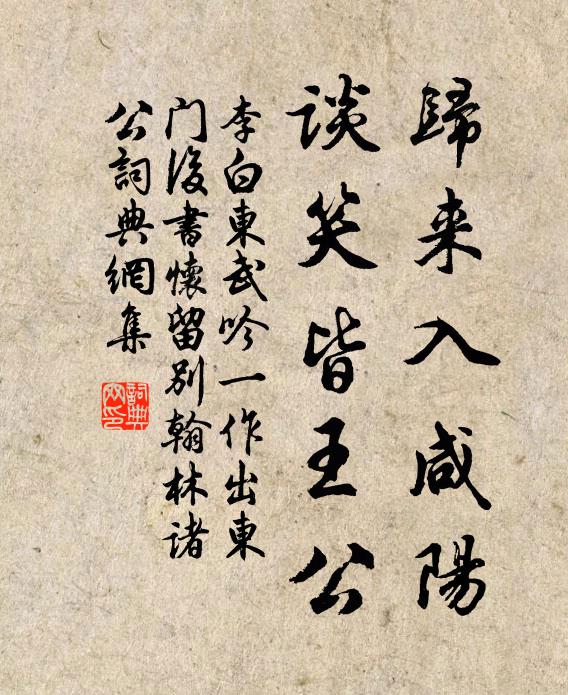 歸来入咸陽
談笑皆王公
李白東武吟一作出東
门後書懷留别翰林諸
公詞典網集
詞典
网印